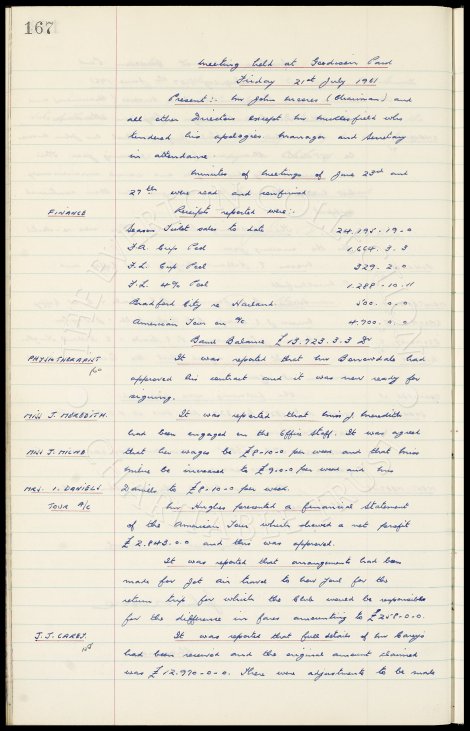 167
Meeting held at Goodison Park
Friday 21st July 1961
Present:- Mr John Moores (Chairman) and
all other Directors except Mr Micklesfield who
tendered his apologies. Manager and Secretary
in attendance.
Minutes of Meetings of June 23rd and
27th were read and confirmed
FINANCE Receipts reported were:-
Season Ticket sales to date 24,195-19-0
F.A. Cup Pool 1,664.3.3
F.L. Cup Pool 329.2.0
F.L. 4% Pool 1.288-10.11
Bradford City re Harland. 500.0.0
American Tour on a/c 4.700.0.0
Bank Balance £13.923.3.3 Dr
PHYSIOTHERAPIST It was reported that Mr Borrowdale had
approved his contract and it was now ready for
signing.
MISS J. MEREDITH. It was reported that Miss J. Meredith
had been engaged on the Office Staff. It was agreed
MISS J. MILNE that her wages be £8-10-0 per week and that Miss
Milne be increased to £9.0.0 per week and Mrs
MRS. I. DANIELS Daniels to £8.10-0 per week.
TOUR A/C Mr Hughes presented a financial statement
of the American Tour which showed a net profit
£2.843.0.0 and this was approved.
It was reported that arrangements had been
made for Jet Air travel to New York for the
return trip for which the Club would be responsible
for the difference in fares amounting to £258-0.0.
J.J. CAREY. It was reported that full details of Mr Carey's
had been received and the original amount claimed
was £12.970-0-0. There were adjustments to be made